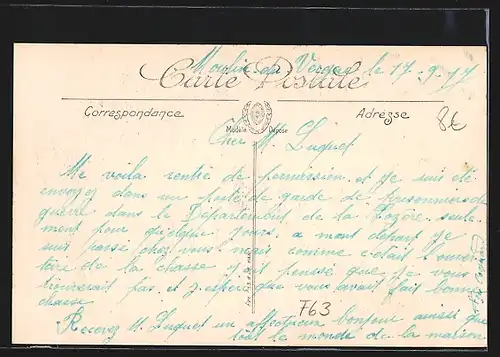 Moulin du Verger le 17.9.17
Carte Postale
Correspondance
Adresse
8€
Modèle Déposé
Cher M. Luquet
Me voila rentré de permission et je suis été
envoyez dans un poste de garde de prisonniers de
guerre dans le Département de la Lozère seule
ment pour quelque jours, a mont depart je
suit passé chez vous mais comme c'etait l'ouver
ture de la chasse j'ait pensée que je vous
trouverait pas et j'espere que vous avait fait bonne
chasse
Recevez M. Luquet un affectueux bonjour aussi que
tout le monde de la maison
F63